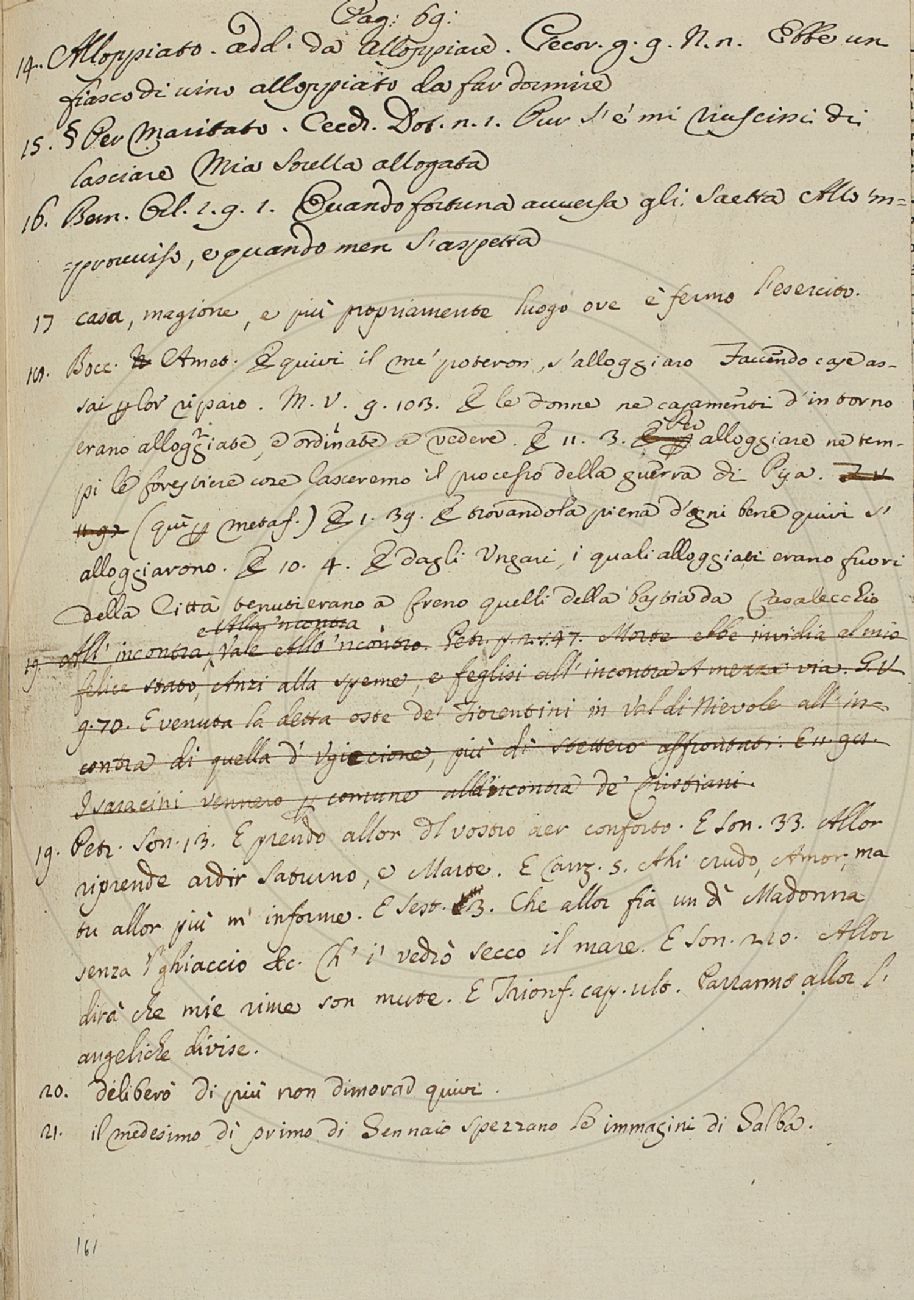 Pag: 69:
14. Alloppiato. add. da Alloppiare. Pecor. g. 9. N. n. Ebbe un
fiasco di vino alloppiato da far dormire
15. § Per Maritato. Cecch. Dot. n. 1. Pur s'è mi riuscissi di
lasciare Mia Sorella allogata
16. Bern. Orl. 1. 9. 1. Quando fortuna avversa gli saetta All' im=
=provviso, e quando men s'aspetta
17 casa, magione, e più propriamente luogo ove è fermo l'esercito.
18. Bocc. Amet. E quivi il me' poteron, s'alloggiaro Faccendo case as-
sai p lor riparo. M. V. 9. 103. E le donne ne casamenti d'intorno
erano alloggiate, e ordinate a vedere. E 11. 3. alloggiare ne tem-
pi le forestiere cose lasceremo il processo della guerra di Pisa.
11 92 (quì p metaf.) E 1. 39. E trovandola piena d'ogni bene quivi s'
alloggiarono. E 10. 4. E dagli Ungari, i quali alloggiati erano fuori
della Città tenuti erano a freno quelli della bastia da Casalecchio
e Alla 'ncontra
19. All' incontra, Vale Allo 'ncontro. Petr. p. 2. s. 47. Morte ebbe invidia al mio
felice stato, Anzi alla speme, e feglisi all' incontra A mezza via. G. V.
9. 70. E venuta la detta oste de' Fiorentini in Val di Nievole all' in-
contra di quella d' Ugiccione, più dì stettero affrontati. E 11. 91.
I saracini vennero p comune all'incontra de' Cristiani.
19. Petr. Son. 13. E prendo allor dl vostro aer conforto. E Son. 33. Allor
riprende ardir Saturno, e Marte. E Canz. 5. Ahi crudo, Amor, ma
tu allor più m' informe. E Sest. 3. Che allor fia un dì Madonna
senza 'l ghiaccio &c. Ch' i' vedrò secco il mare. E Son. 210. Allor
dirà che mie rime son mute. E Trionf. cap. ult. Parranno allor l'
angeliche divise.
20. deliberò di più non dimorar quivi.
21. il medesimo dì primo di Gennaio spezzano le immagini di Galba.
161